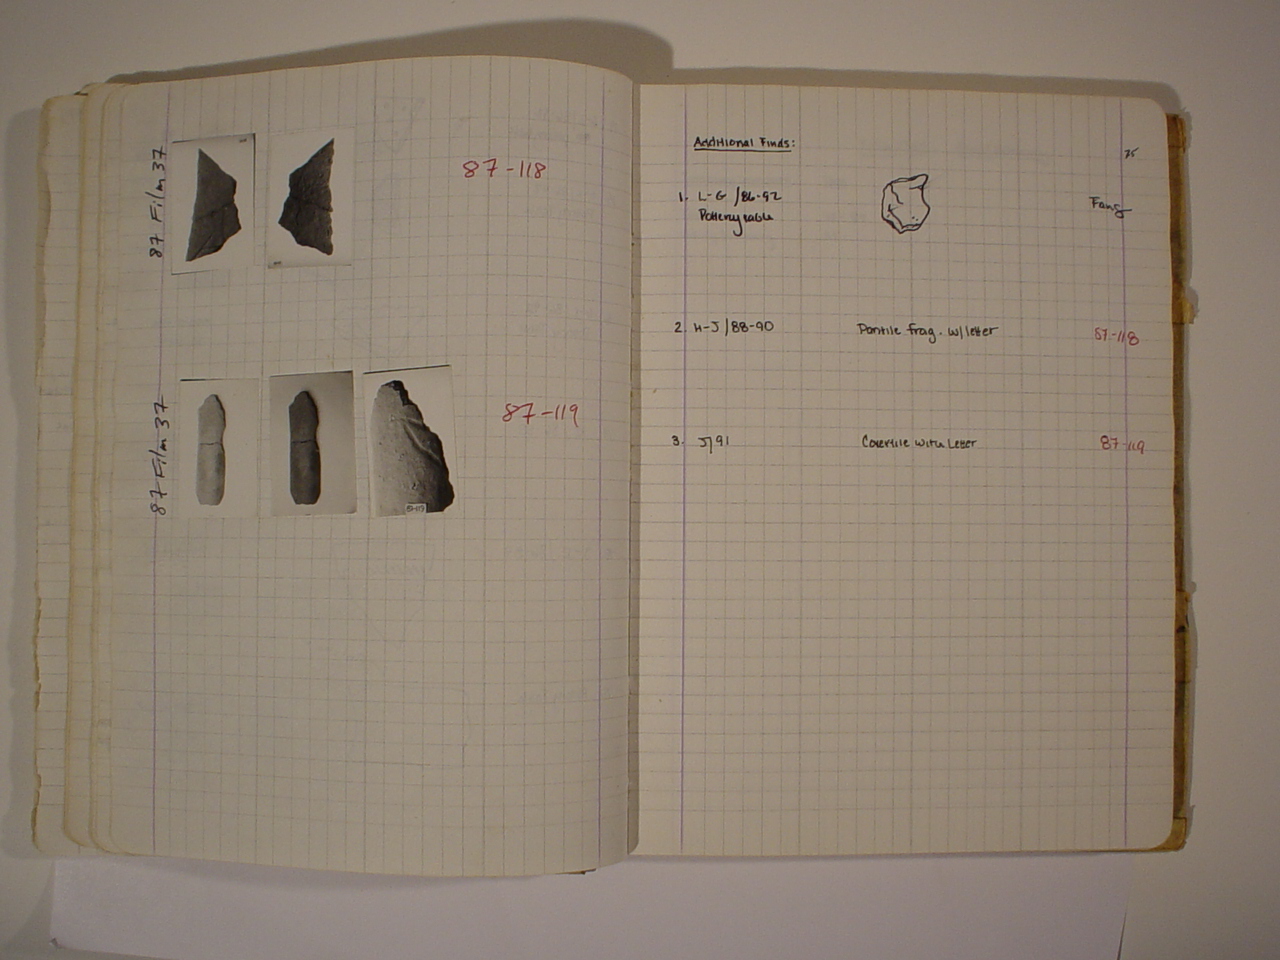 87 Film 37
87-118
87 Film 37
87-119
87-119
Additional Finds:
75
1. L-G /86-92
Pottery table
Fang
2. H-J /88-90 Pantile frag. w/letter 87-118
3. J/91 Covertile with Letter 87-119